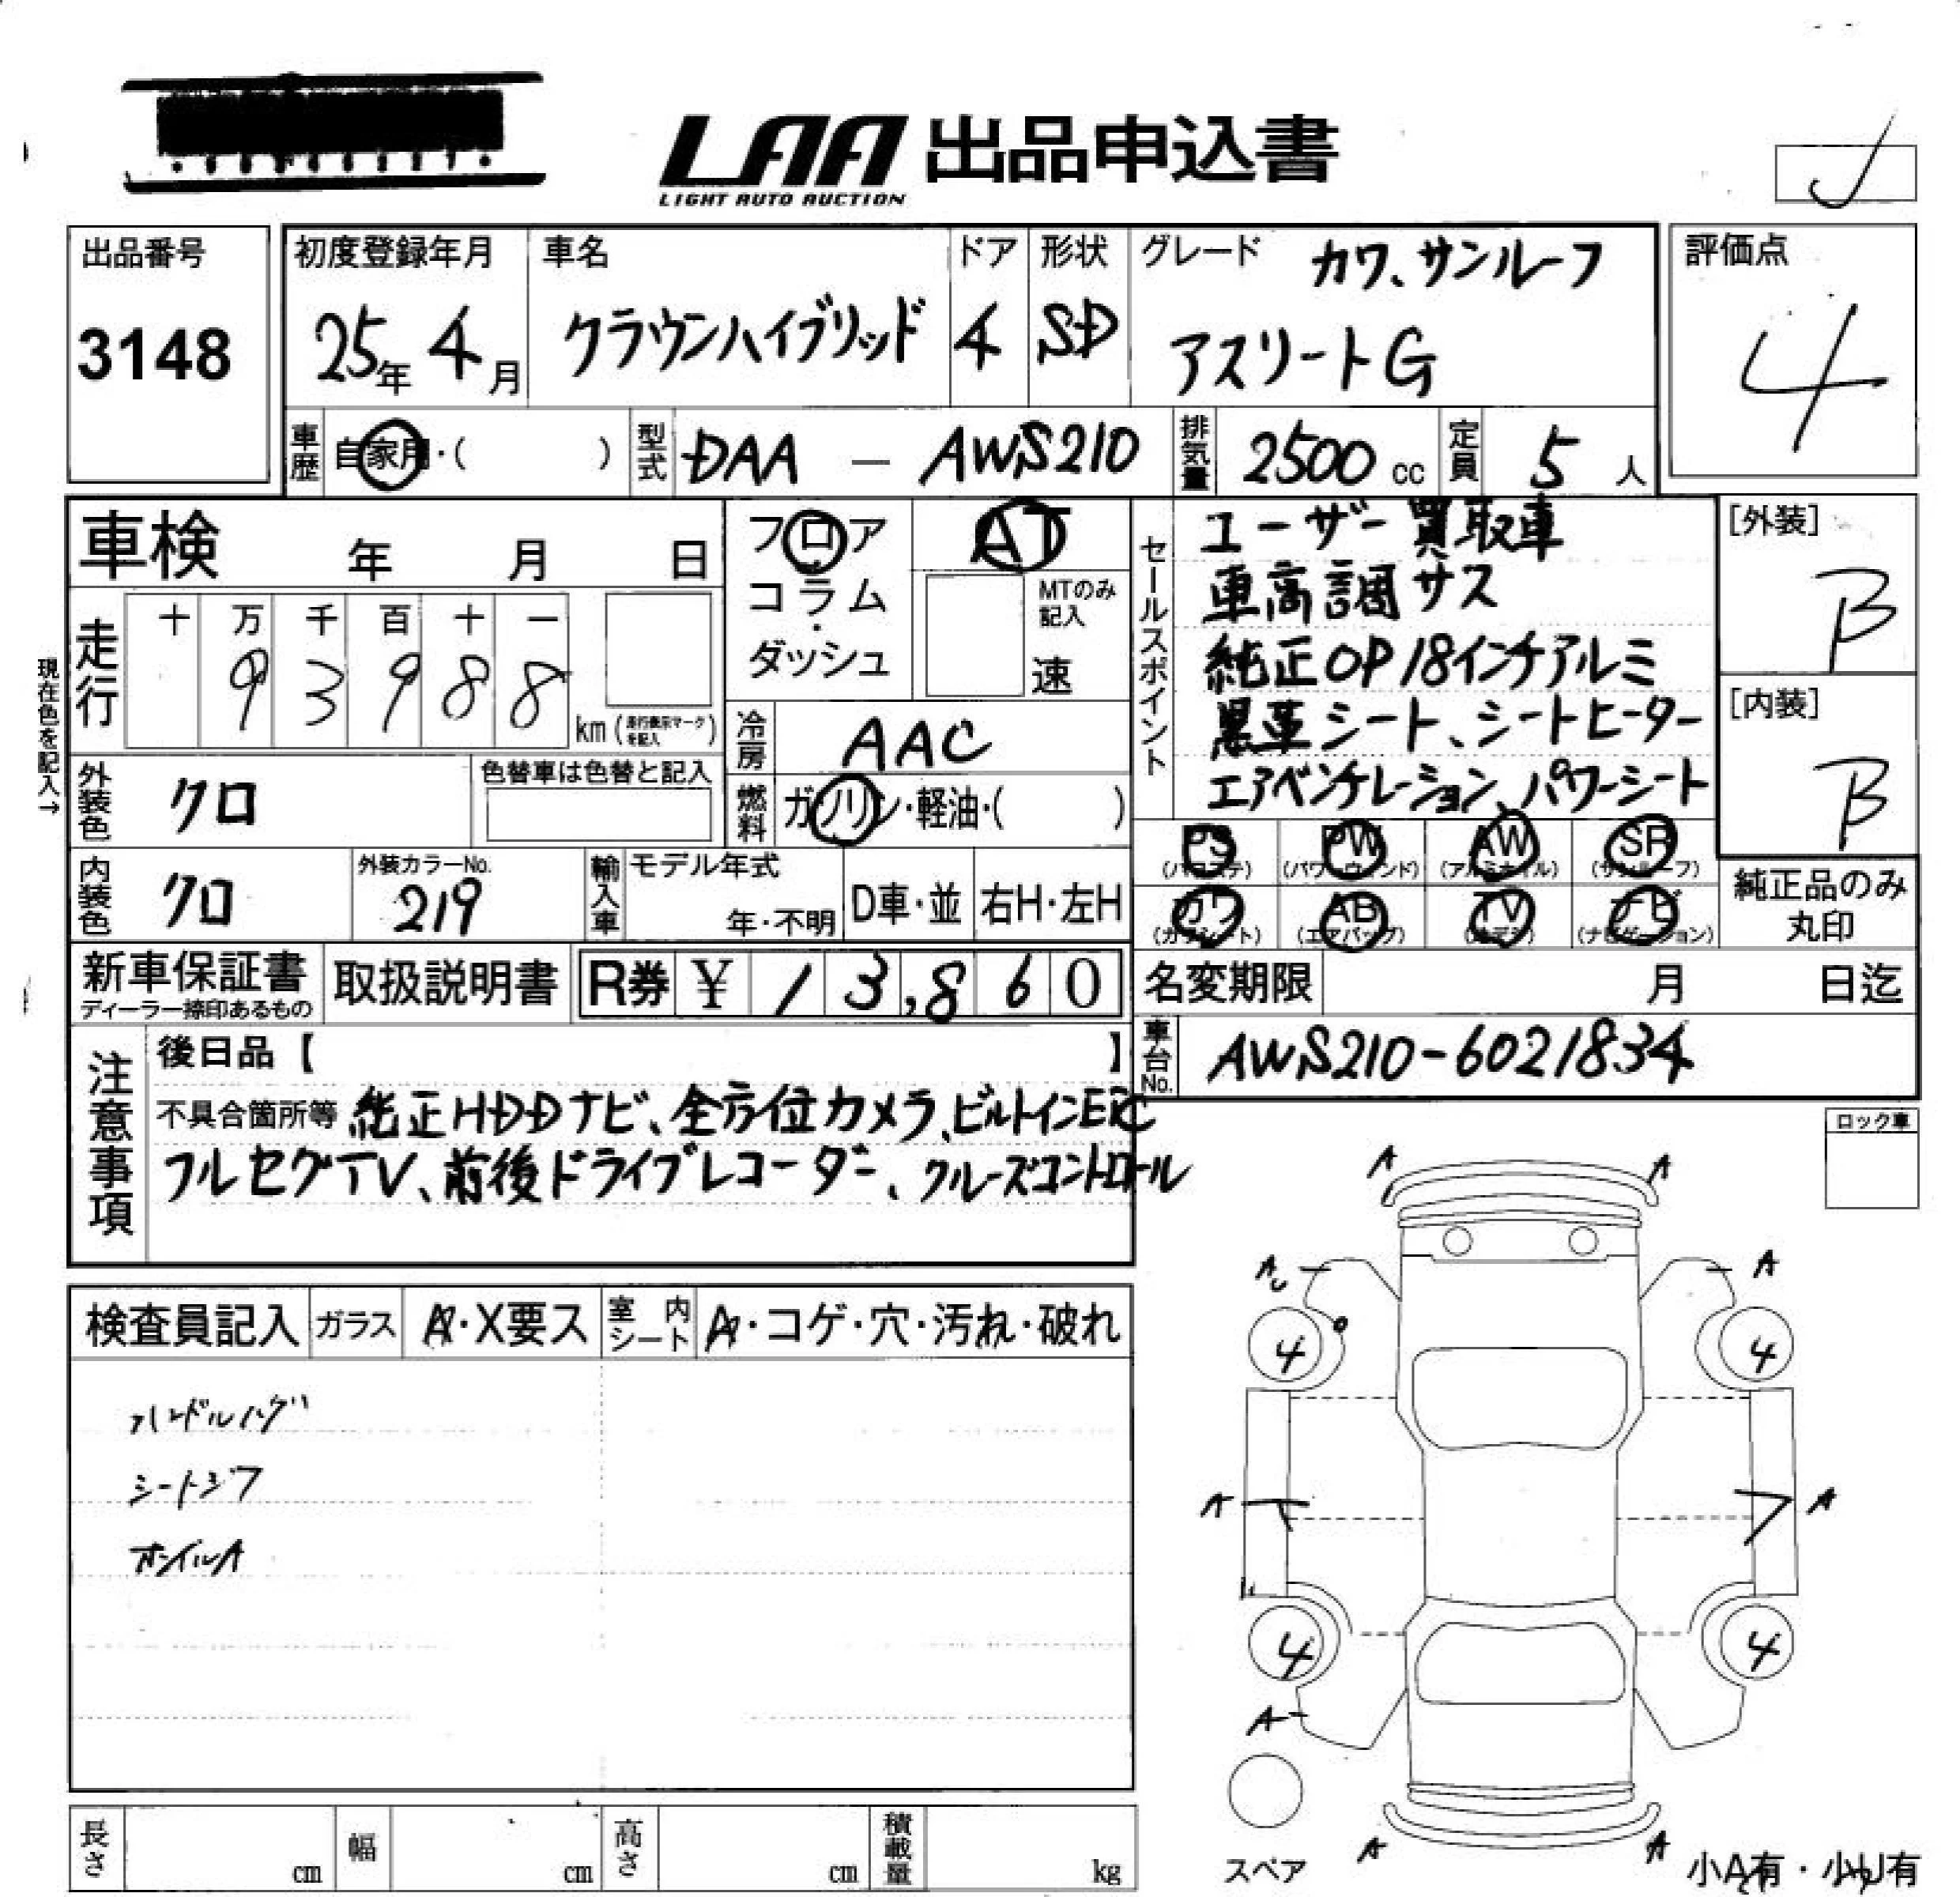 LAA 出品申込書
LIGHT AUTO AUCTION
出品番号
3148
初度登録年月
25年 4月
車名
クラウンハイブリッド
ドア
4
形状
SD
グレード カワ、サンルーフ
アスリートG
評価点
4
車歴 自家用・( )
型式 DAA - AWS210
排気量 2500 cc
定員 5 人
車検 年 月 日
走行
十 万 千 百 十 一
9 3 9 8 8
km (走行表示マークを記入)
現在色を記入→
フロア
コラム
・
ダッシュ
AT
MTのみ
記入
速
冷房 AAC
燃料 ガソリン・軽油・( )
外装色 クロ
色替車は色替と記入
内装色 クロ
外装カラーNo.
219
輸入車
モデル年式
年・不明
D車・並
右H・左H
セールスポイント
ユーザー買取車
車高調サス
純正OP18インチアルミ
黒革シート、シートヒーター
エアベンチレーション、パワーシート
[外装]
B
[内装]
B
PS PW AW SR
(パワステ) (パワーウィンド) (アルミホイル) (サンルーフ)
カワ AB TV ナビ
(カワシート) (エアバッグ) (ナビゲーション)
純正品のみ
丸印
新車保証書
ディーラー捺印あるもの
取扱説明書
R券 ¥ 13,860
名変期限 月 日迄
車台No. AWS210-6021834
注意事項
後日品【 】
不具合箇所等 純正HDDナビ、全方位カメラ、ビルトインETC
フルセグTV、前後ドライブレコーダー、クルーズコントロール
ロック車
検査員記入
ガラス A・X要ス
室内シート A・コゲ・穴・汚れ・破れ
ハンドルハゲ
シートシワ
ホイルA
A A
A A
4 4
A A
4 4
A
スペア
A A
小A有・小U有
長さ cm
幅 cm
高さ cm
積載量 kg